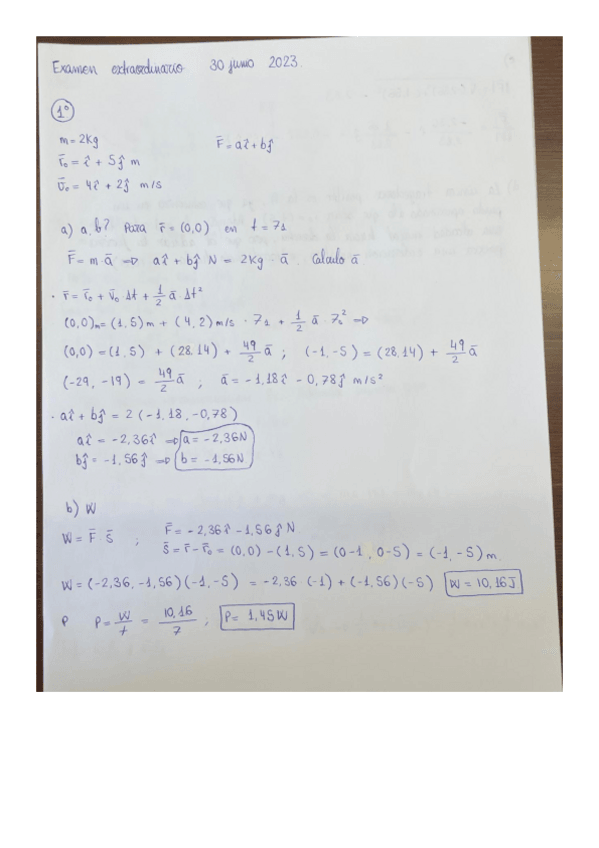 Examen extraordinario 30 junio 2023.
1º
m = 2Kg F̄ = aî + bĵ
r̄₀ = î + 5ĵ m
v̄₀ = 4î + 2ĵ m/s
a) a, b? Para r̄ = (0,0) en t = 7s
F̄ = m·ā ⇒ aî + bĵ N = 2Kg · ā. Calculo ā
· r̄ = r̄₀ + v̄₀ Δt + 1/2 ā Δt²
(0,0)m = (1,5)m + (4,2)m/s · 7s + 1/2 ā · 7s² ⇒
(0,0) = (1,5) + (28,14) + 49/2 ā ; (-1,-5) = (28,14) + 49/2 ā
(-29, -19) = 49/2 ā ; ā = -1,18î - 0,78ĵ m/s²
· aî + bĵ = 2 (-1,18, -0,78)
aî = -2,36î ⇒ a = -2,36N
bĵ = -1,56ĵ ⇒ b = -1,56N
b) W
W = F̄ · S̄ ; F̄ = -2,36î - 1,56ĵ N
S̄ = r̄ - r̄₀ = (0,0) - (1,5) = (0-1, 0-5) = (-1,-5) m.
W = (-2,36, -1,56)(-1,-5) = -2,36 (-1) + (-1,56)(-5) W = 10,16J
P P = W/t = 10,16/7 ; P = 1,45W